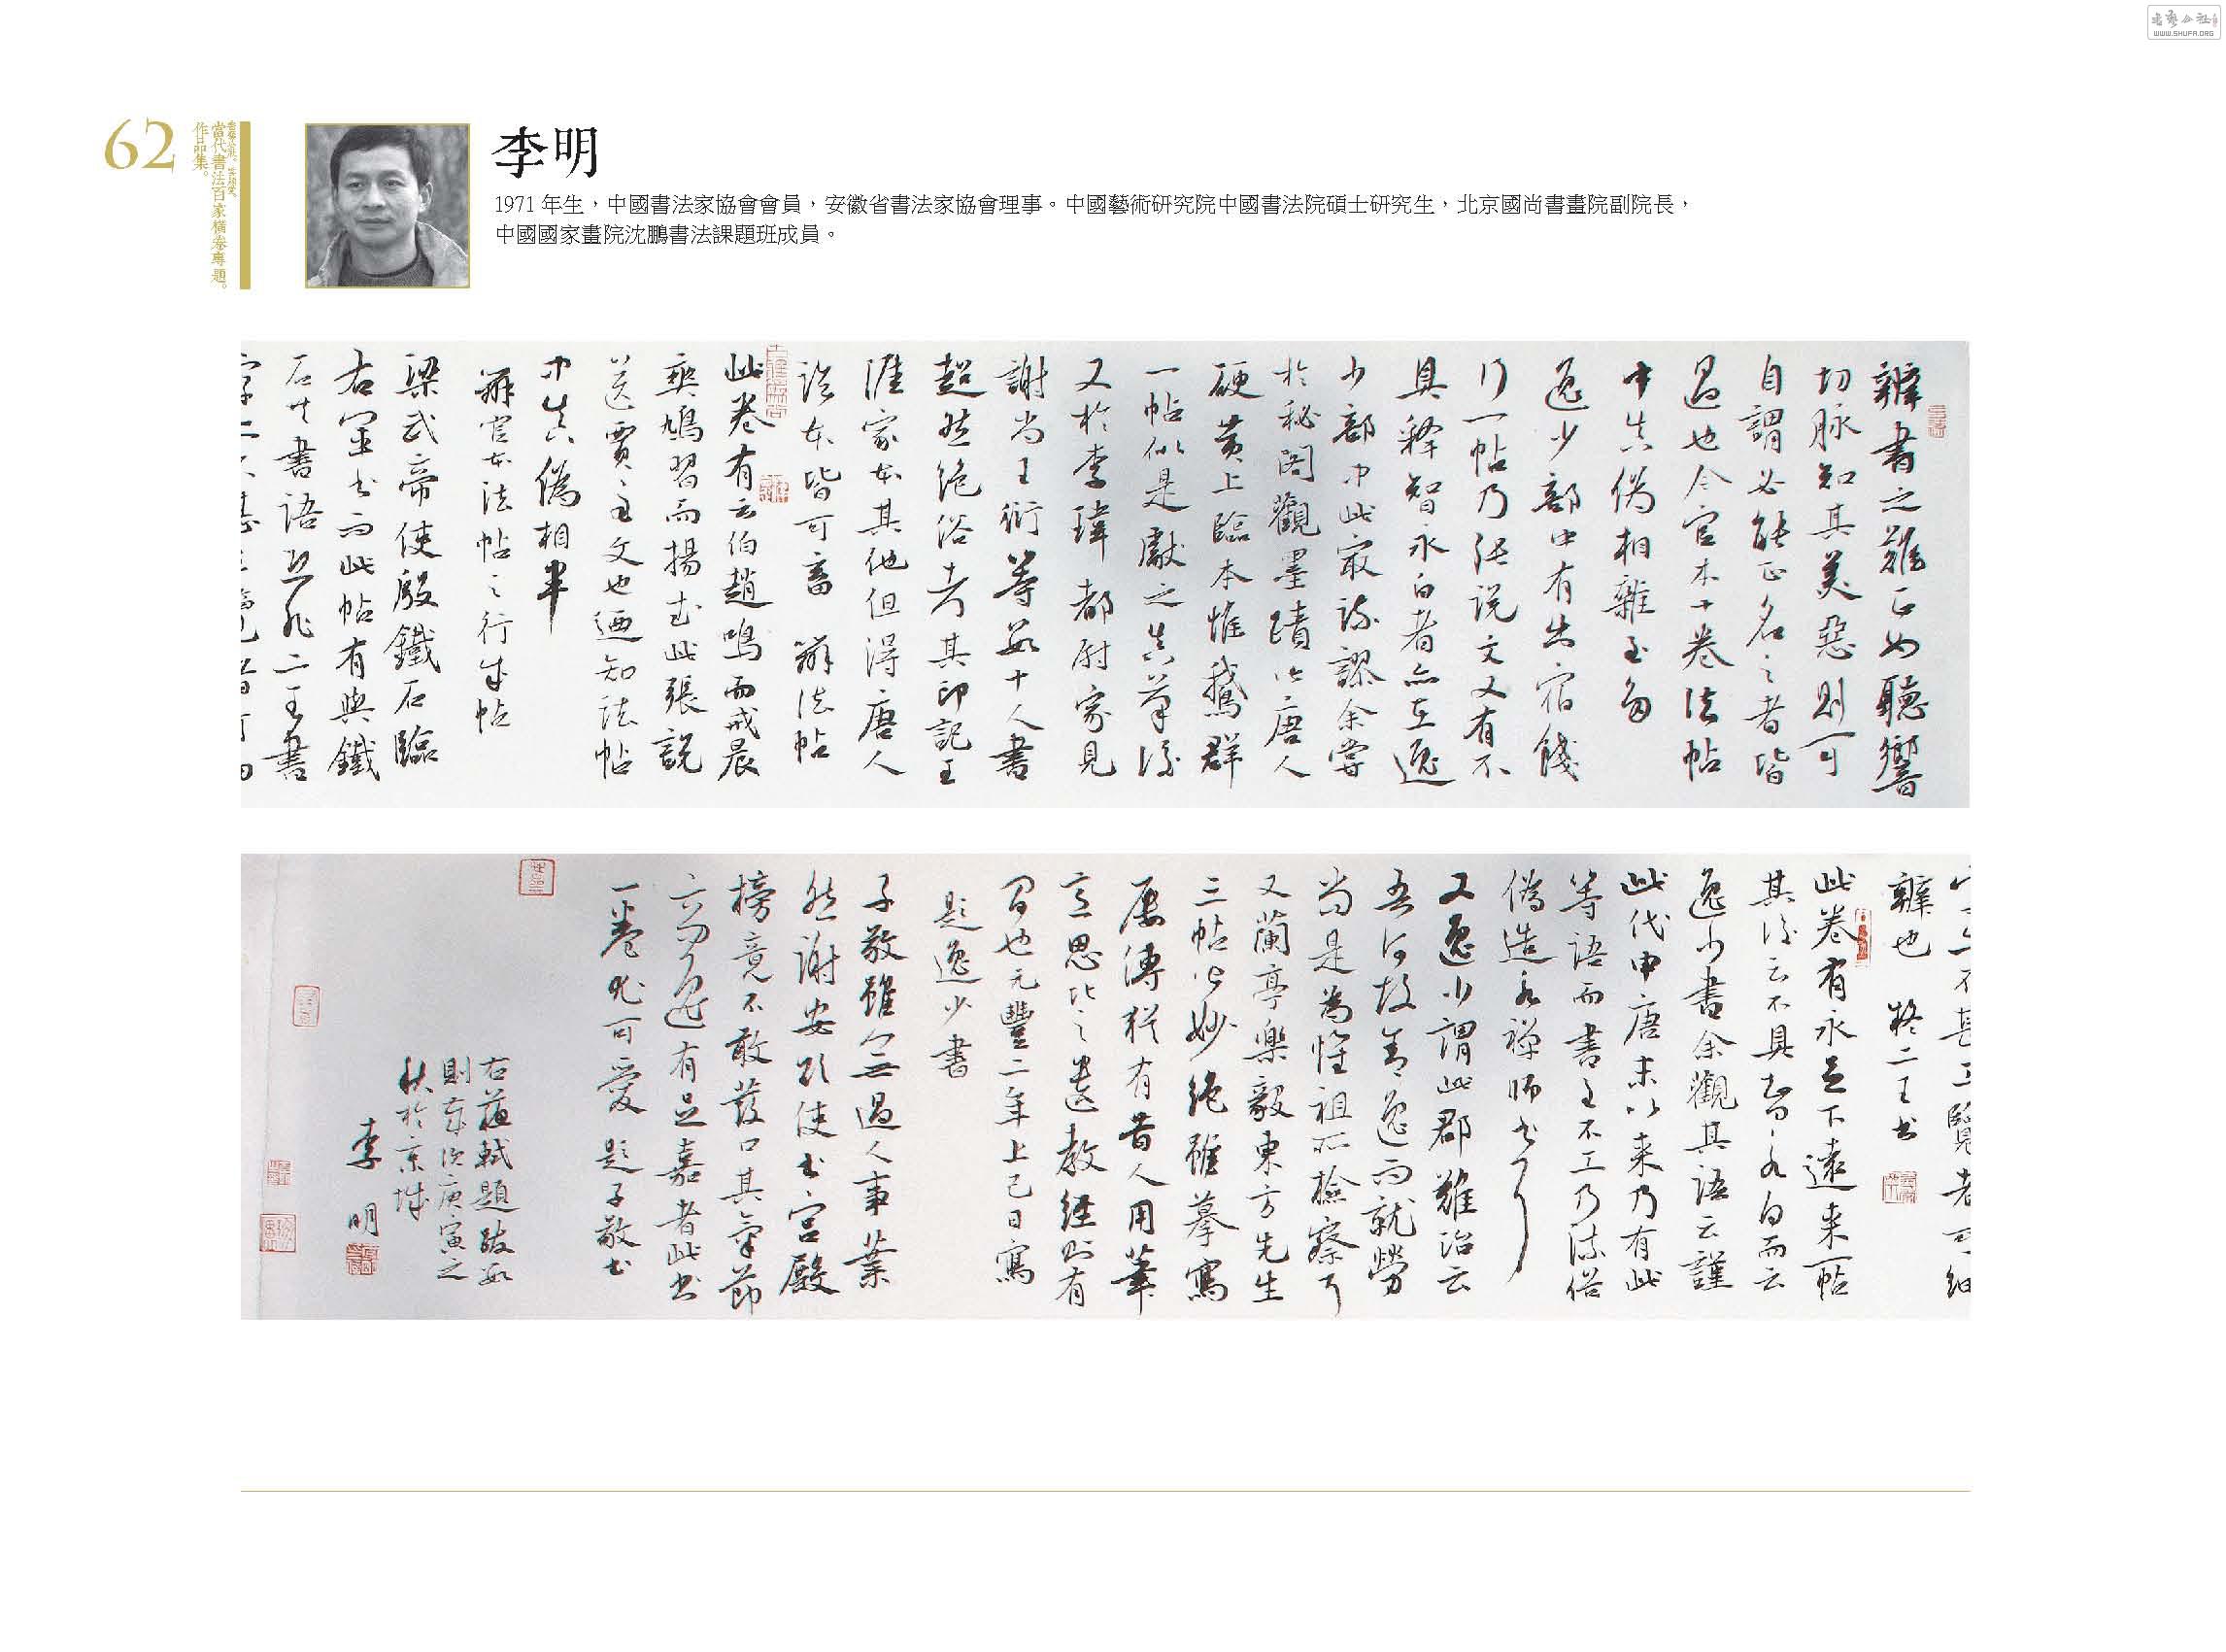 62
當代書法百家橫卷專題。
作品集。
李明
1971 年生，中國書法家協會會員，安徽省書法家協會理事。中國藝術研究院中國書法院碩士研究生，北京國尚書畫院副院長，
中國國家畫院沈鵬書法課題班成員。
辨書之難正如聽響
切脉知其美惡則可
自謂必能正名之者皆
過也今官本十卷法帖
中真偽相雜至多
逸少部中有出宿餞
行一帖乃張説文又有不
具釋智永白者亦在逸
少部中此最疎謬余嘗
於秘閣觀墨蹟皆唐人
硬黄上臨本惟鵝群
一帖似是獻之真筆後
又於李瑋都尉家見
謝尚王衍等數十人書
超然絶俗考其印記王
涯家本其他但得唐人
本皆可畜 辨法帖
此卷有云伯趙鳴而戒晨
爽鳩習而揚武此張説
送賈至文也廼知法帖
中真偽相半
辨官本法帖之行帖
梁武帝使殷鐵石臨
右軍書而此帖有與鐵
石共書語恐非二王書
字亦不甚工覽者可細
辨也 疑二王書
此卷有永足下還来一帖
其後云不具智永白而云
逸少書余觀其語云謹
此代申唐末以来乃有此
等語而書至不工乃流俗
偽造永禪師書耳
又逸少謂此郡難治云
吾何故舍逸而就勞
當是為懷祖所檢察耳
又蘭亭樂毅東方先生
三帖皆妙絶雖摹寫
屡傳猶有昔人用筆
意思比之遺教經則有
間也元豐二年上巳日寫
題逸少書
子敬雖無過人事業
然謝安欲使書宮殿
榜竟不敢發口其氣節
高逸有足嘉者此書
一卷尤可愛 題子敬書
右蘇軾題跋數
則歲次庚寅之
秋於京城
李明
WWW.SHUFA.ORG